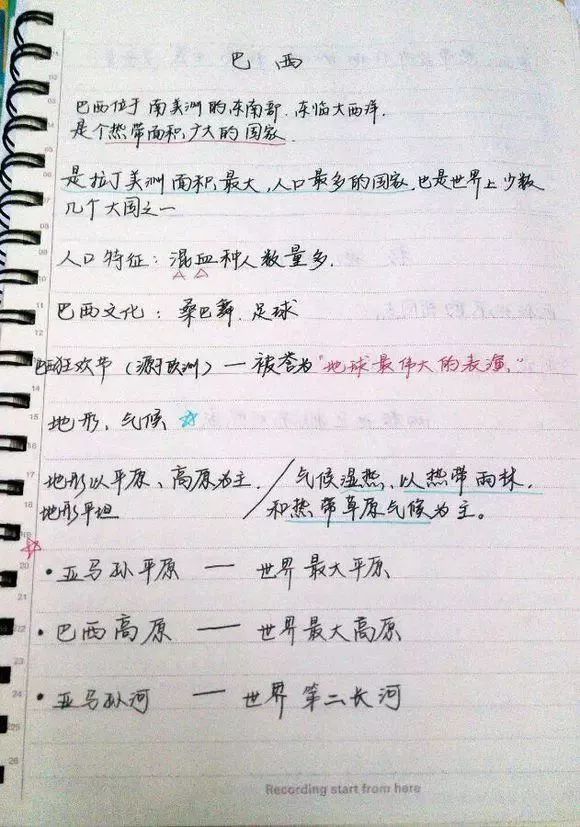 巴西
巴西位于南美洲的东南部,东临大西洋.
是个热带面积广大的国家.
是拉丁美洲面积最大,人口最多的国家,也是世界上少数
几个大国之一
人口特征:混血种人数量多.
巴西文化:桑巴舞.足球
巴西狂欢节(源于欧洲)—被誉为"地球最伟大的表演."
地形、气候☆
地形以平原、高原为主. / 气候湿热、以热带雨林.
地形平坦 / 和热带草原气候为主。
☆
·亚马孙平原 — 世界最大平原
·巴西高原 — 世界最大高原
·亚马孙河 — 世界第二长河
Recording start from here